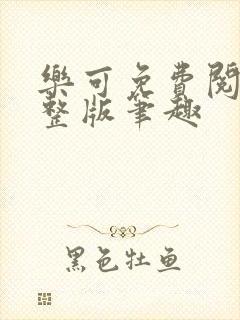 樂可免費閱
整版筆趣
黑色牡鱼